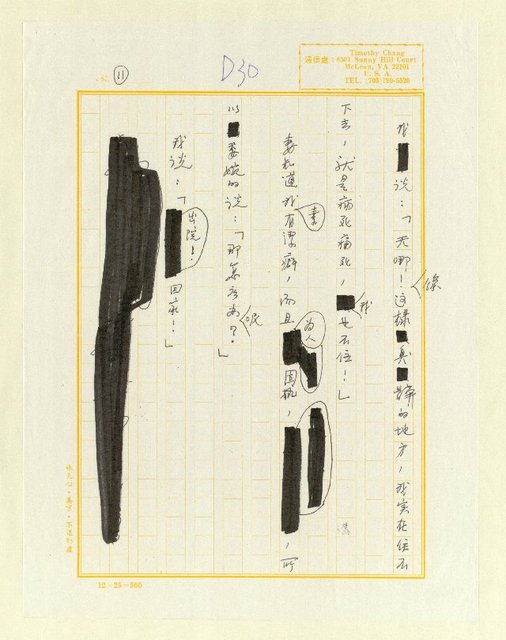 D30
11
通信處：
Timothy Chang
6501 Sunny Hill Court
McLean, VA 22101
U. S. A.
TEL. (703)790-5520
我說：「天哪！這樣臭的地方，我實在住不
下去，就是病死痛死，我也不住！」
妻知道我有潔癖，而且為人固執，所
以委婉的說：「那怎麼辦？」
我說：「出院！回家！」
12－25＝300